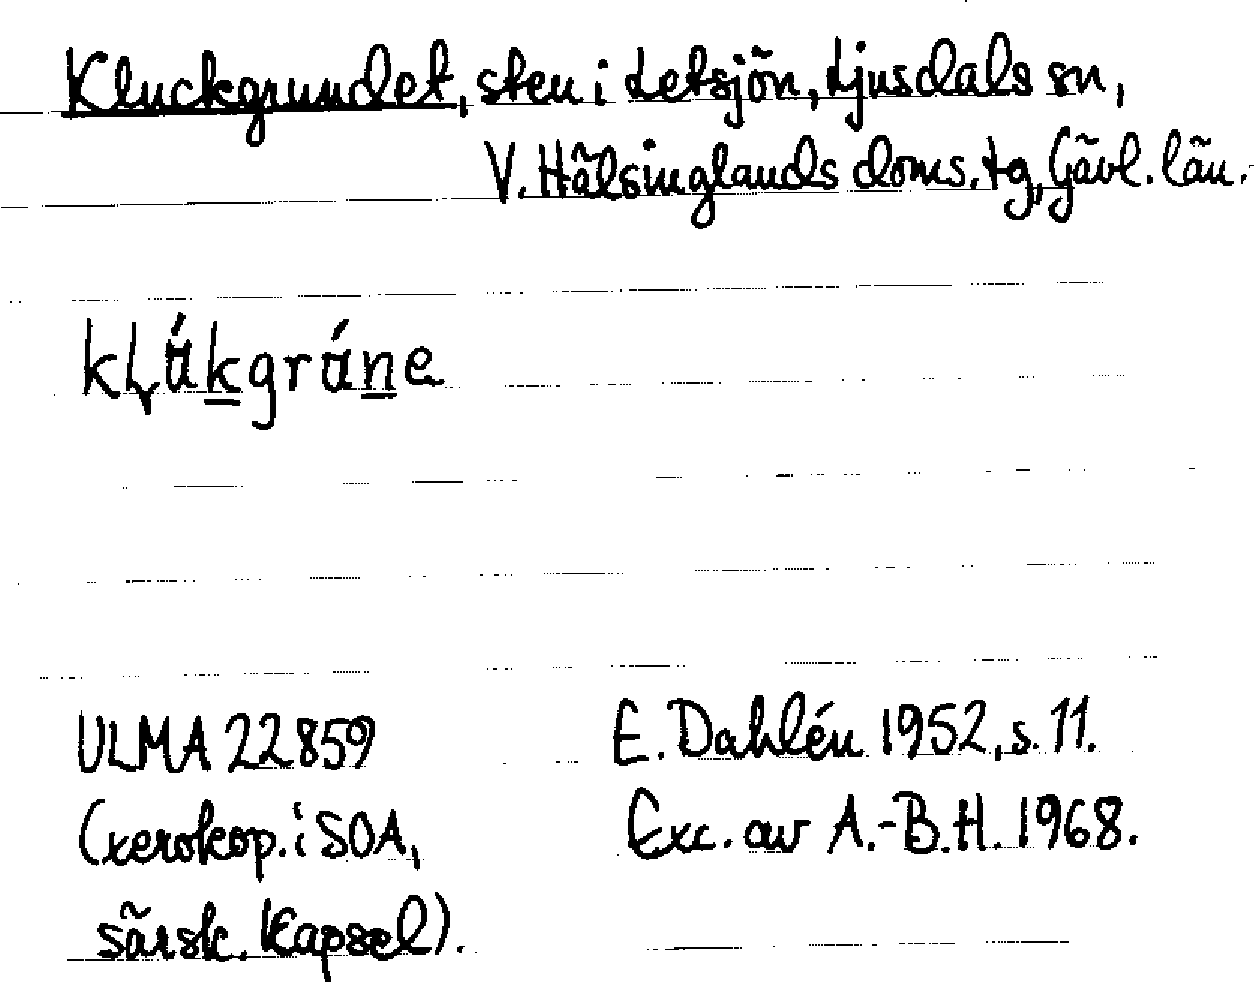 Kluckgrundet, sten i Letsjön, Ljusdals sn,
V. Hälsinglands doms. tg, Gävl. län.
kḷúkgrúne
ULMA 22859
(xerokop. i SOA,
särsk. kapsel).
E. Dahlén 1952, s. 11.
Exc. av A.-B.H. 1968.